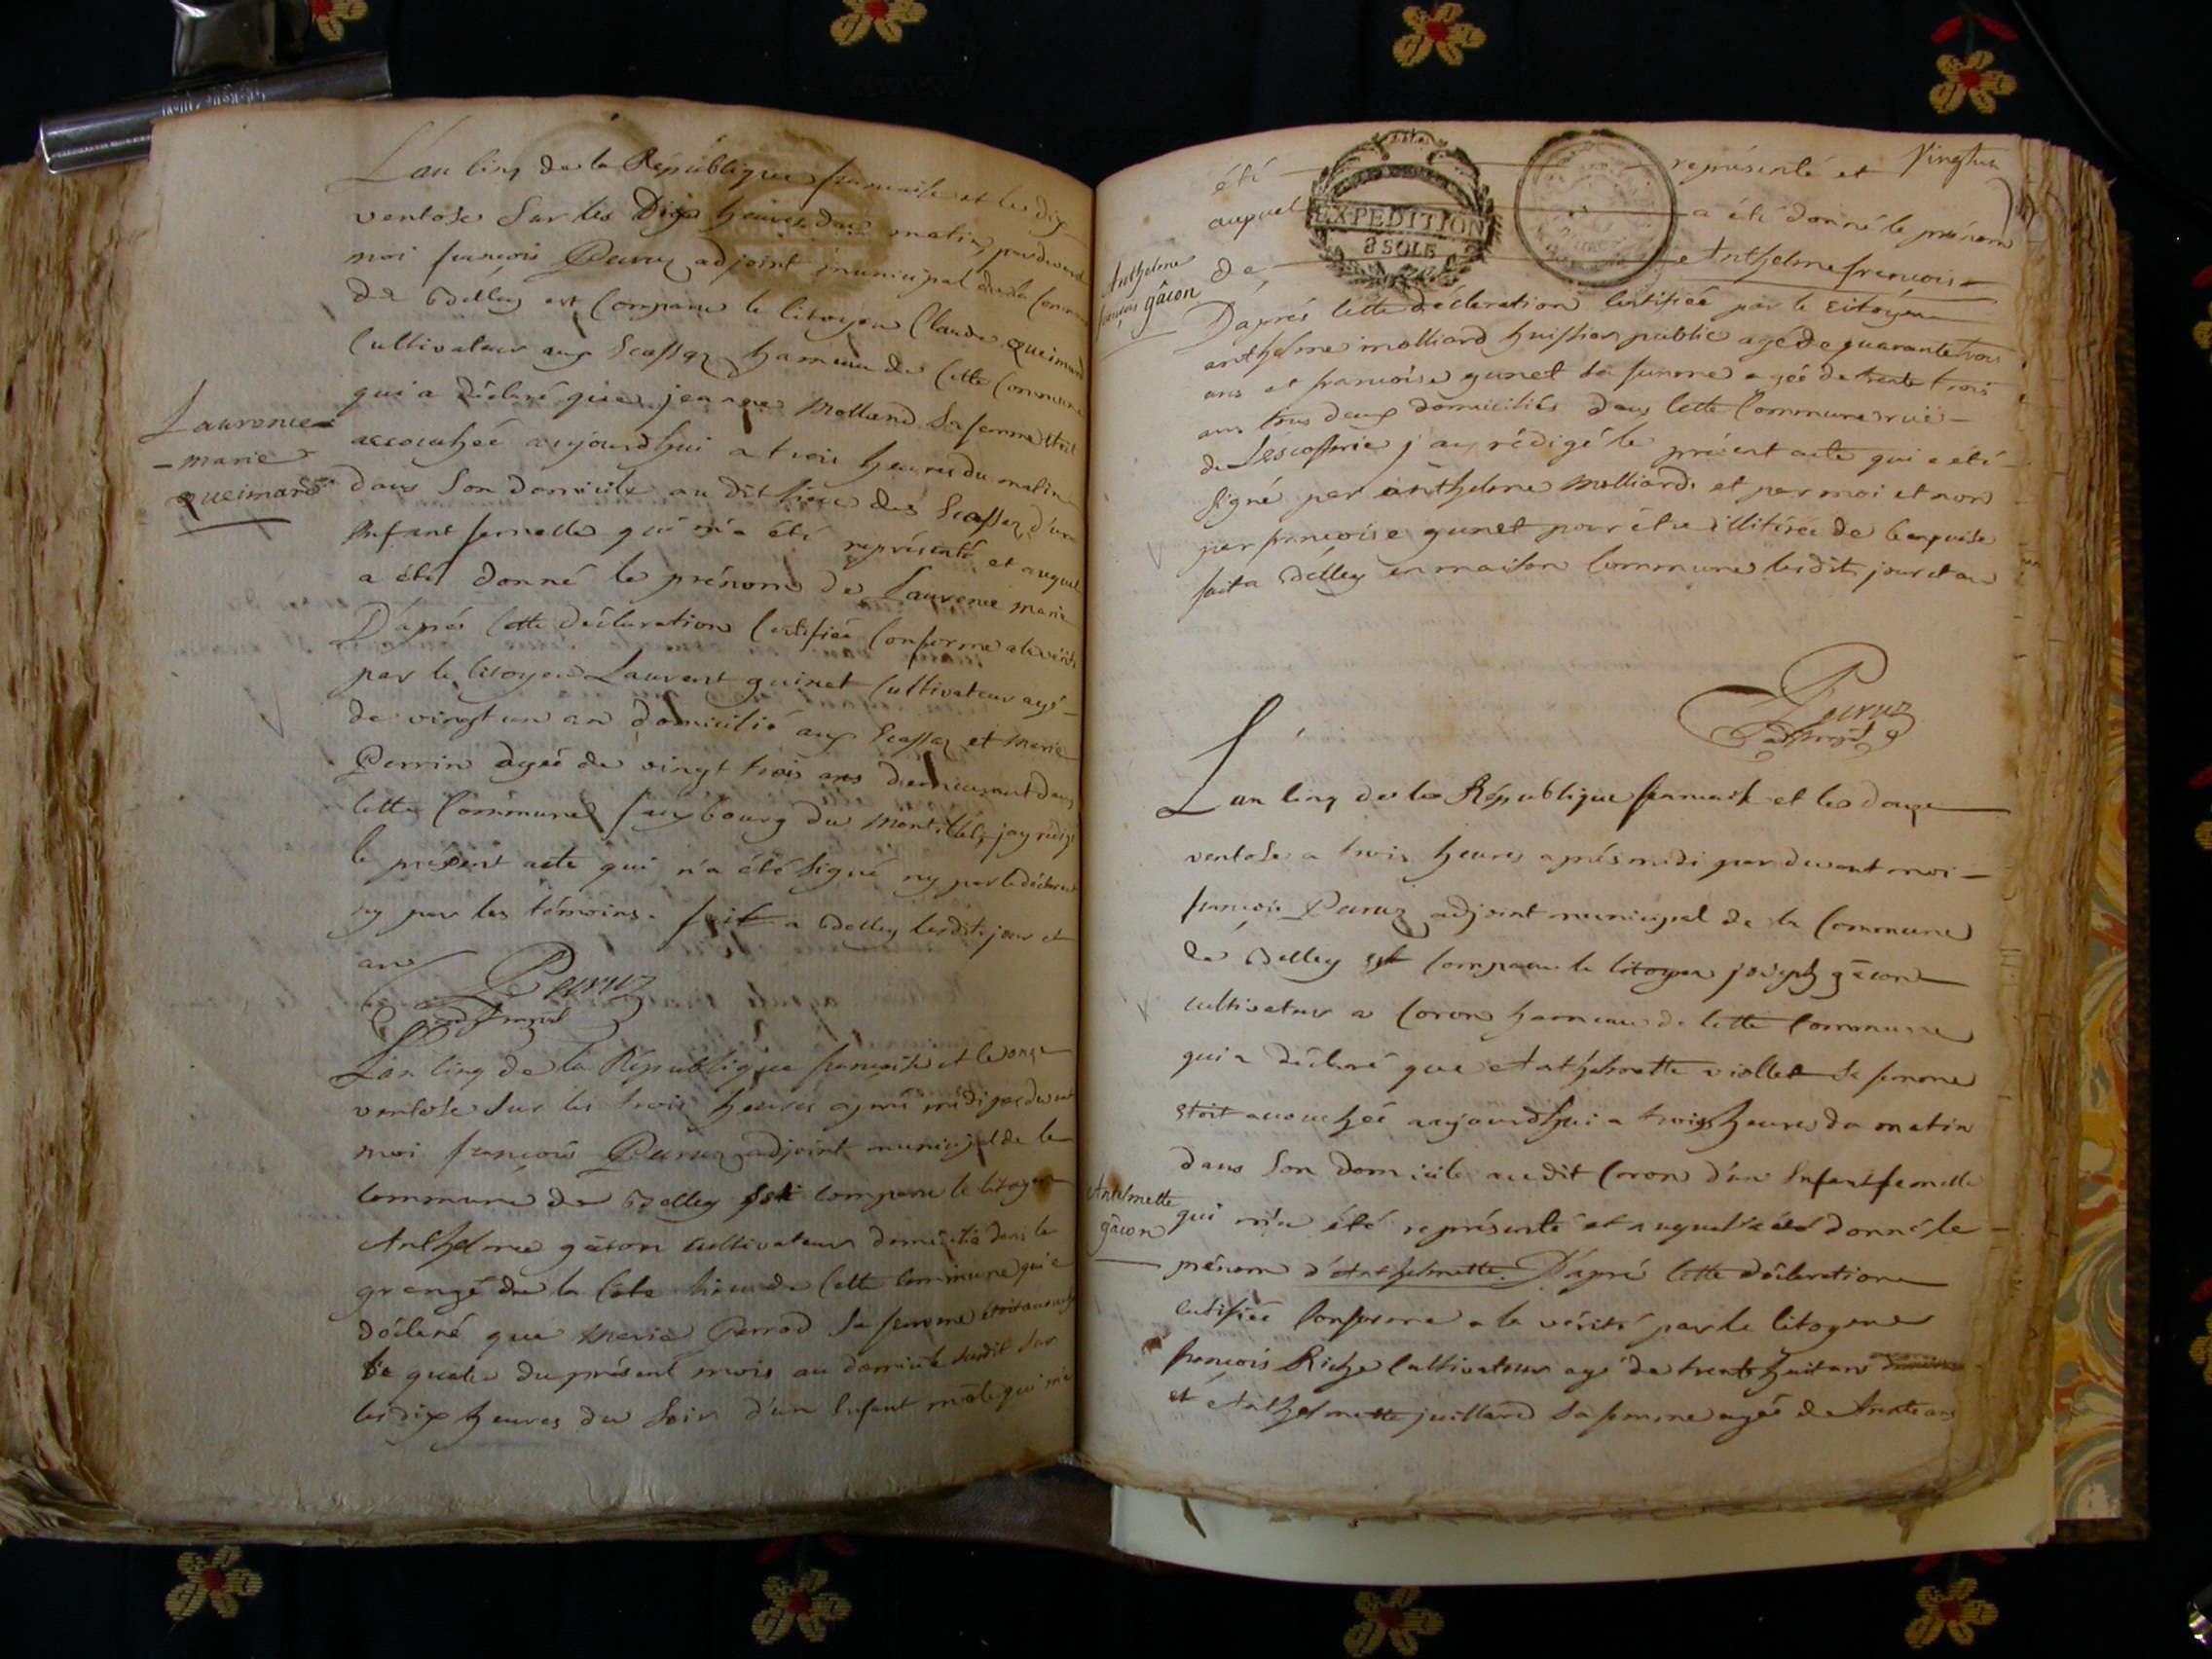 L'an cinq de la République francaise et le dix
ventose sur les Dix heures du matin, pardevant
moi francois Peruz adjoint municipal de la Commune
de Belley est Comparu le citoyen Claude queimard
Cultivateur aux Scassaz hameau de Cette Commune
qui a déclaré que jeanne Molland Sa femme étoit
accouchée aujourdhui a trois heures du matin
dans Son domicile au dit lieu des Scassaz, d'un
Enfant femelle qui m'a été représenté et auquel
a été donné le prénom de Laurence Marie
Laurence
- marie
queimard
D'aprés Cette déclaration Certifiée Conforme a la vérité
par le Citoyen Laurent guinet Cultivateur agé
de vingt un an domicilié aux Scassaz et Marie
Perrin agée de vingt trois ans demeurant dans
Cette Commune fauxbourg du Montillet, jay rédigé
le présent acte qui n'a été Signé ny par le déclarant
ny par les témoins. fait a Belley lesdits jour et
an
Peruz
adjoint
L'an Cinq de la République francaise et le onze
ventose Sur les trois heures aprés midi pardevant
moi francois Peruz adjoint municipal de la
Commune de Belley Est Comparu le Citoyen
Anthelme gâcon Cultivateur domicilié dans la
grange de la Cote lieu de Cette Commune qui a
déclaré que Maria Perrod Sa femme étoit accouchée
le quatre du présent mois au domicile Susdit Sur
les dix heures du Soir d'un Enfant mâle qui m'a
vingthui
été représenté et
auquel a été donné le prénom
de Anthelme francois
EXPEDITION
8 SOLS
Anthelme
françois gâcon
D'aprés Cette déclaration Certifiée par le Citoyen
anthelme molliard huissier public agé de quarante trois
ans et francoise gunet Sa femme agée de trente trois
ans tous deux domiciliés dans Cette Commune rue
de Lescofferie j'ay rédigé le présent acte qui a été
Signé par anthelme Molliard et par moi et non
par francoise gunet pour être illitérée de Ce enquise
fait a Belley en maison Commune lesdits jour et an
Peruz
adjoint
L'an Cinq de la République francaise et le douze
ventose a trois heures aprés midi pardevant moi
francois Peruz adjoint municipal de la Commune
de Belley Est Comparu le Citoyen joseph gâcon
cultivateur a Coron hameau de Cette Commune
qui a déclaré que Anthelmette viollet Sa femme
étoit accouchée aujourdhui a trois heures du matin
dans Son domicile audit Coron d'un Enfant femelle
qui m'a été représenté et auquel a été donné le
Antelmette
gâcon
prénom d'Anthelmette. D'aprés Cette déclaration
Certifiée Conforme a la vérité par le Citoyen
francois Riche Cultivateur agé de trente huit ans
et Anthelmette juillard Sa femme agée de trente ans